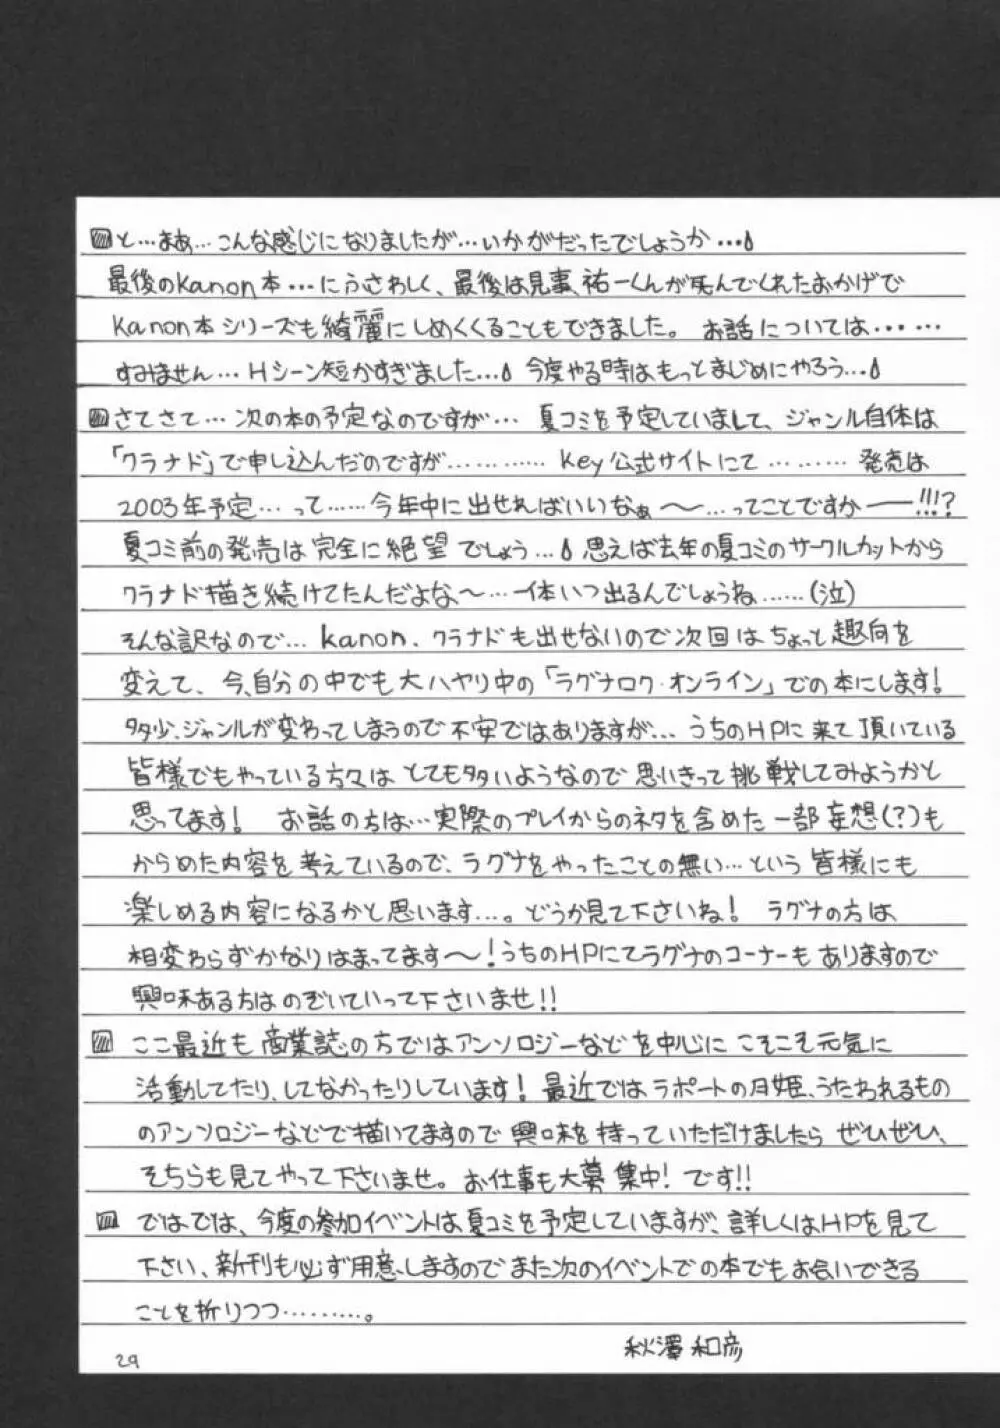 と…まぁ…こんな感じになりましたが…いかがだったでしょうか…
最後のkanon本…にふさわしく、最後は見事、祐一くんが死んでくれたおかげで
kanon本シリーズも綺麗にしめくくることもできました。お話については……
すみません…Hシーン短かすぎました…今度やる時はもっとまじめにやろう…
さてさて…次の本の予定なのですが…夏コミを予定していまして、ジャンル自体は
「クラナド」で申し込んだのですが…………key公式サイトにて………発売は
2003年予定…って……今年中に出せればいいなぁ〜…ってことですかー!!!?
夏コミ前の発売は完全に絶望でしょう…思えば去年の夏コミのサークルカットから
クラナド描き続けてたんだよな、〜…一体いつ出るんでしょうね……(泣)
そんな訳なので…kanon、クラナドも出せないので次回はちょっと趣向を
変えて、今、自分の中でも大ハヤリ中の「ラグナロク・オンライン」での本にします!
多少、ジャンルが変わってしまうので不安ではありますが…うちのHPに来て頂いている
皆様でもやっている方々はとても多いようなので思いきって挑戦してみようかと
思ってます! お話の方は…実際のプレイからのネタを含めた一部妄想(?)も
からめた内容を考えているので、ラグナをやったことの無い…という皆様にも
楽しめる内容になるかと思います…。どうか見て下さいね! ラグナの方は、
相変わらずかなりはまってます〜!うちのHPにてラグナのコーナーもありますので
興味ある方はのぞいていって下さいませ!!
ここ最近も商業誌の方ではアンソロジーなどを中心にこそこそ元気に
活動してたり、してなかったりしています! 最近では、ラポートの月姫、うたわれるもの
のアンソロジーなどで描いてますので興味を持っていただけましたらぜひぜひ、
そちらも見てやって下さいませ。お仕事も大募集中!です!!
ではでは、今度の参加イベントは夏コミを予定していますが、詳しくはHPを見て
下さい、新刊も必ず用意しますのでまた次のイベントでの本でもお会いできる
ことを祈りつつ………。
秋澤 和彦
29